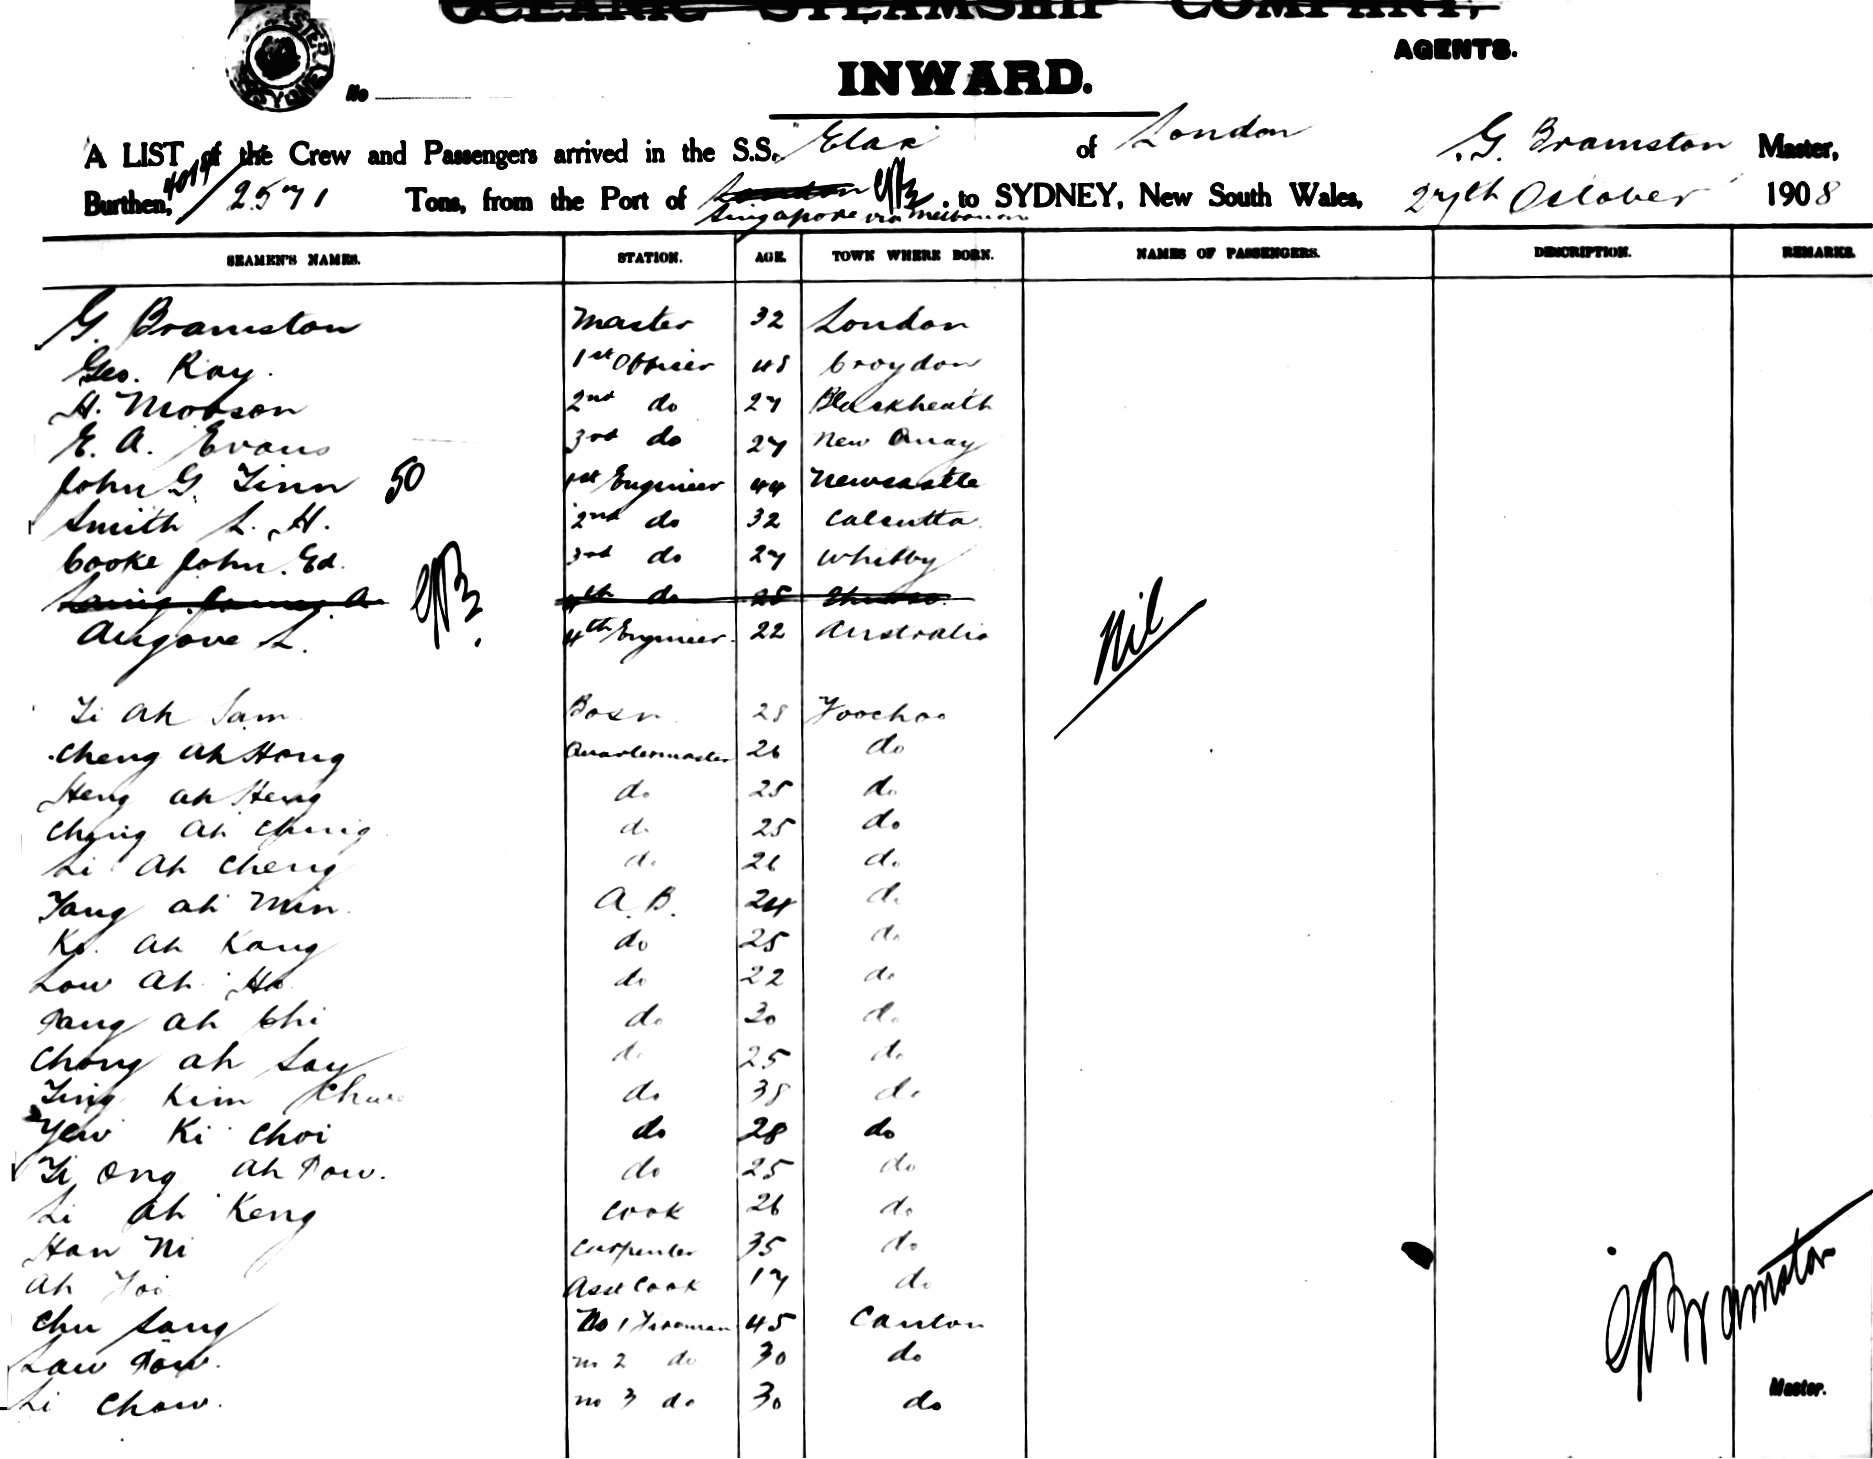 OCEANIC STEAMSHIP COMPANY,
AGENTS.
INWARD.
No
A LIST of the Crew and Passengers arrived in the S.S. "Elax" of London G. Bramston Master,
Burthen, 4019/2571 Tons, from the Port of London GB. to SYDNEY, New South Wales, 27th October 1908
Singapore via Melbourne
SEAMEN'S NAMES. STATION. AGE. TOWN WHERE BORN. NAMES OF PASSENGERS. DESCRIPTION. REMARKS.
G. Bramston Master 32 London
Geo. Ray. 1st Officer 48 Croydon
H. Mobson 2nd do 27 Blackheath
E. A. Evans 3rd do 27 New Quay
John G. Finn 50 1st Engineer 44 Newcastle
Smith L. H. 2nd do 32 Calcutta
Cooke John. Ed. 3rd do 27 Whitby
Laing James A 4th do 28
Angove L. 4th Engineer 22 Australia
Nil
Li Ah Sam Bosn 28 Foochoo
Cheng Ah Hong Quartermaster 26 do
Heng Ah Heng do 25 do
Ching Ah Ching do 25 do
Li Ah Cheng do 26 do
Yang Ah Min A.B. 24 do
Ko Ah Kang do 25 do
Low Ah Ho do 22 do
Pang Ah Chi do 30 do
Chong Ah Say do 25 do
Ting Kim do 38 do
Yew Ki Choi do 28 do
Ti Ong Ah Pow. do 25 do
Li Ah Keng Cook 26 do
Han Ni Carpenter 35 do
Ah Foi Asst Cook 17 do
Chu Sang No 1 Fireman 45 Canton
Law Pow. no 2 do 30 do
Li Chow. no 3 do 30 do
G Bramston
Master.